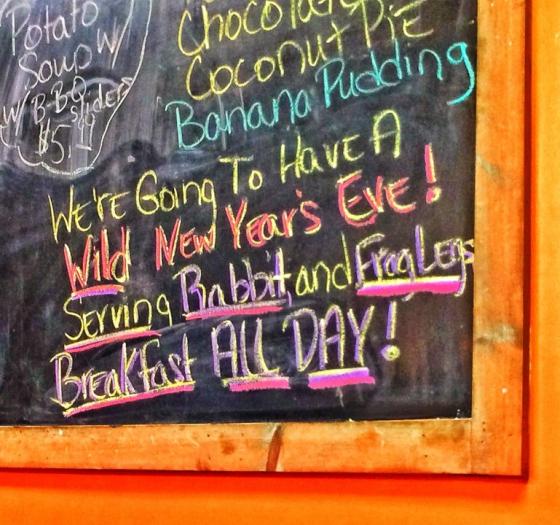 Potato
Soup W/
W/ B-B-Q
Sliders
$5.
Chocolate
Coconut Pie
Banana Pudding
We're Going To Have A
Wild New Year's Eve!
Serving Rabbit, and Frog Legs
Breakfast ALL DAY!